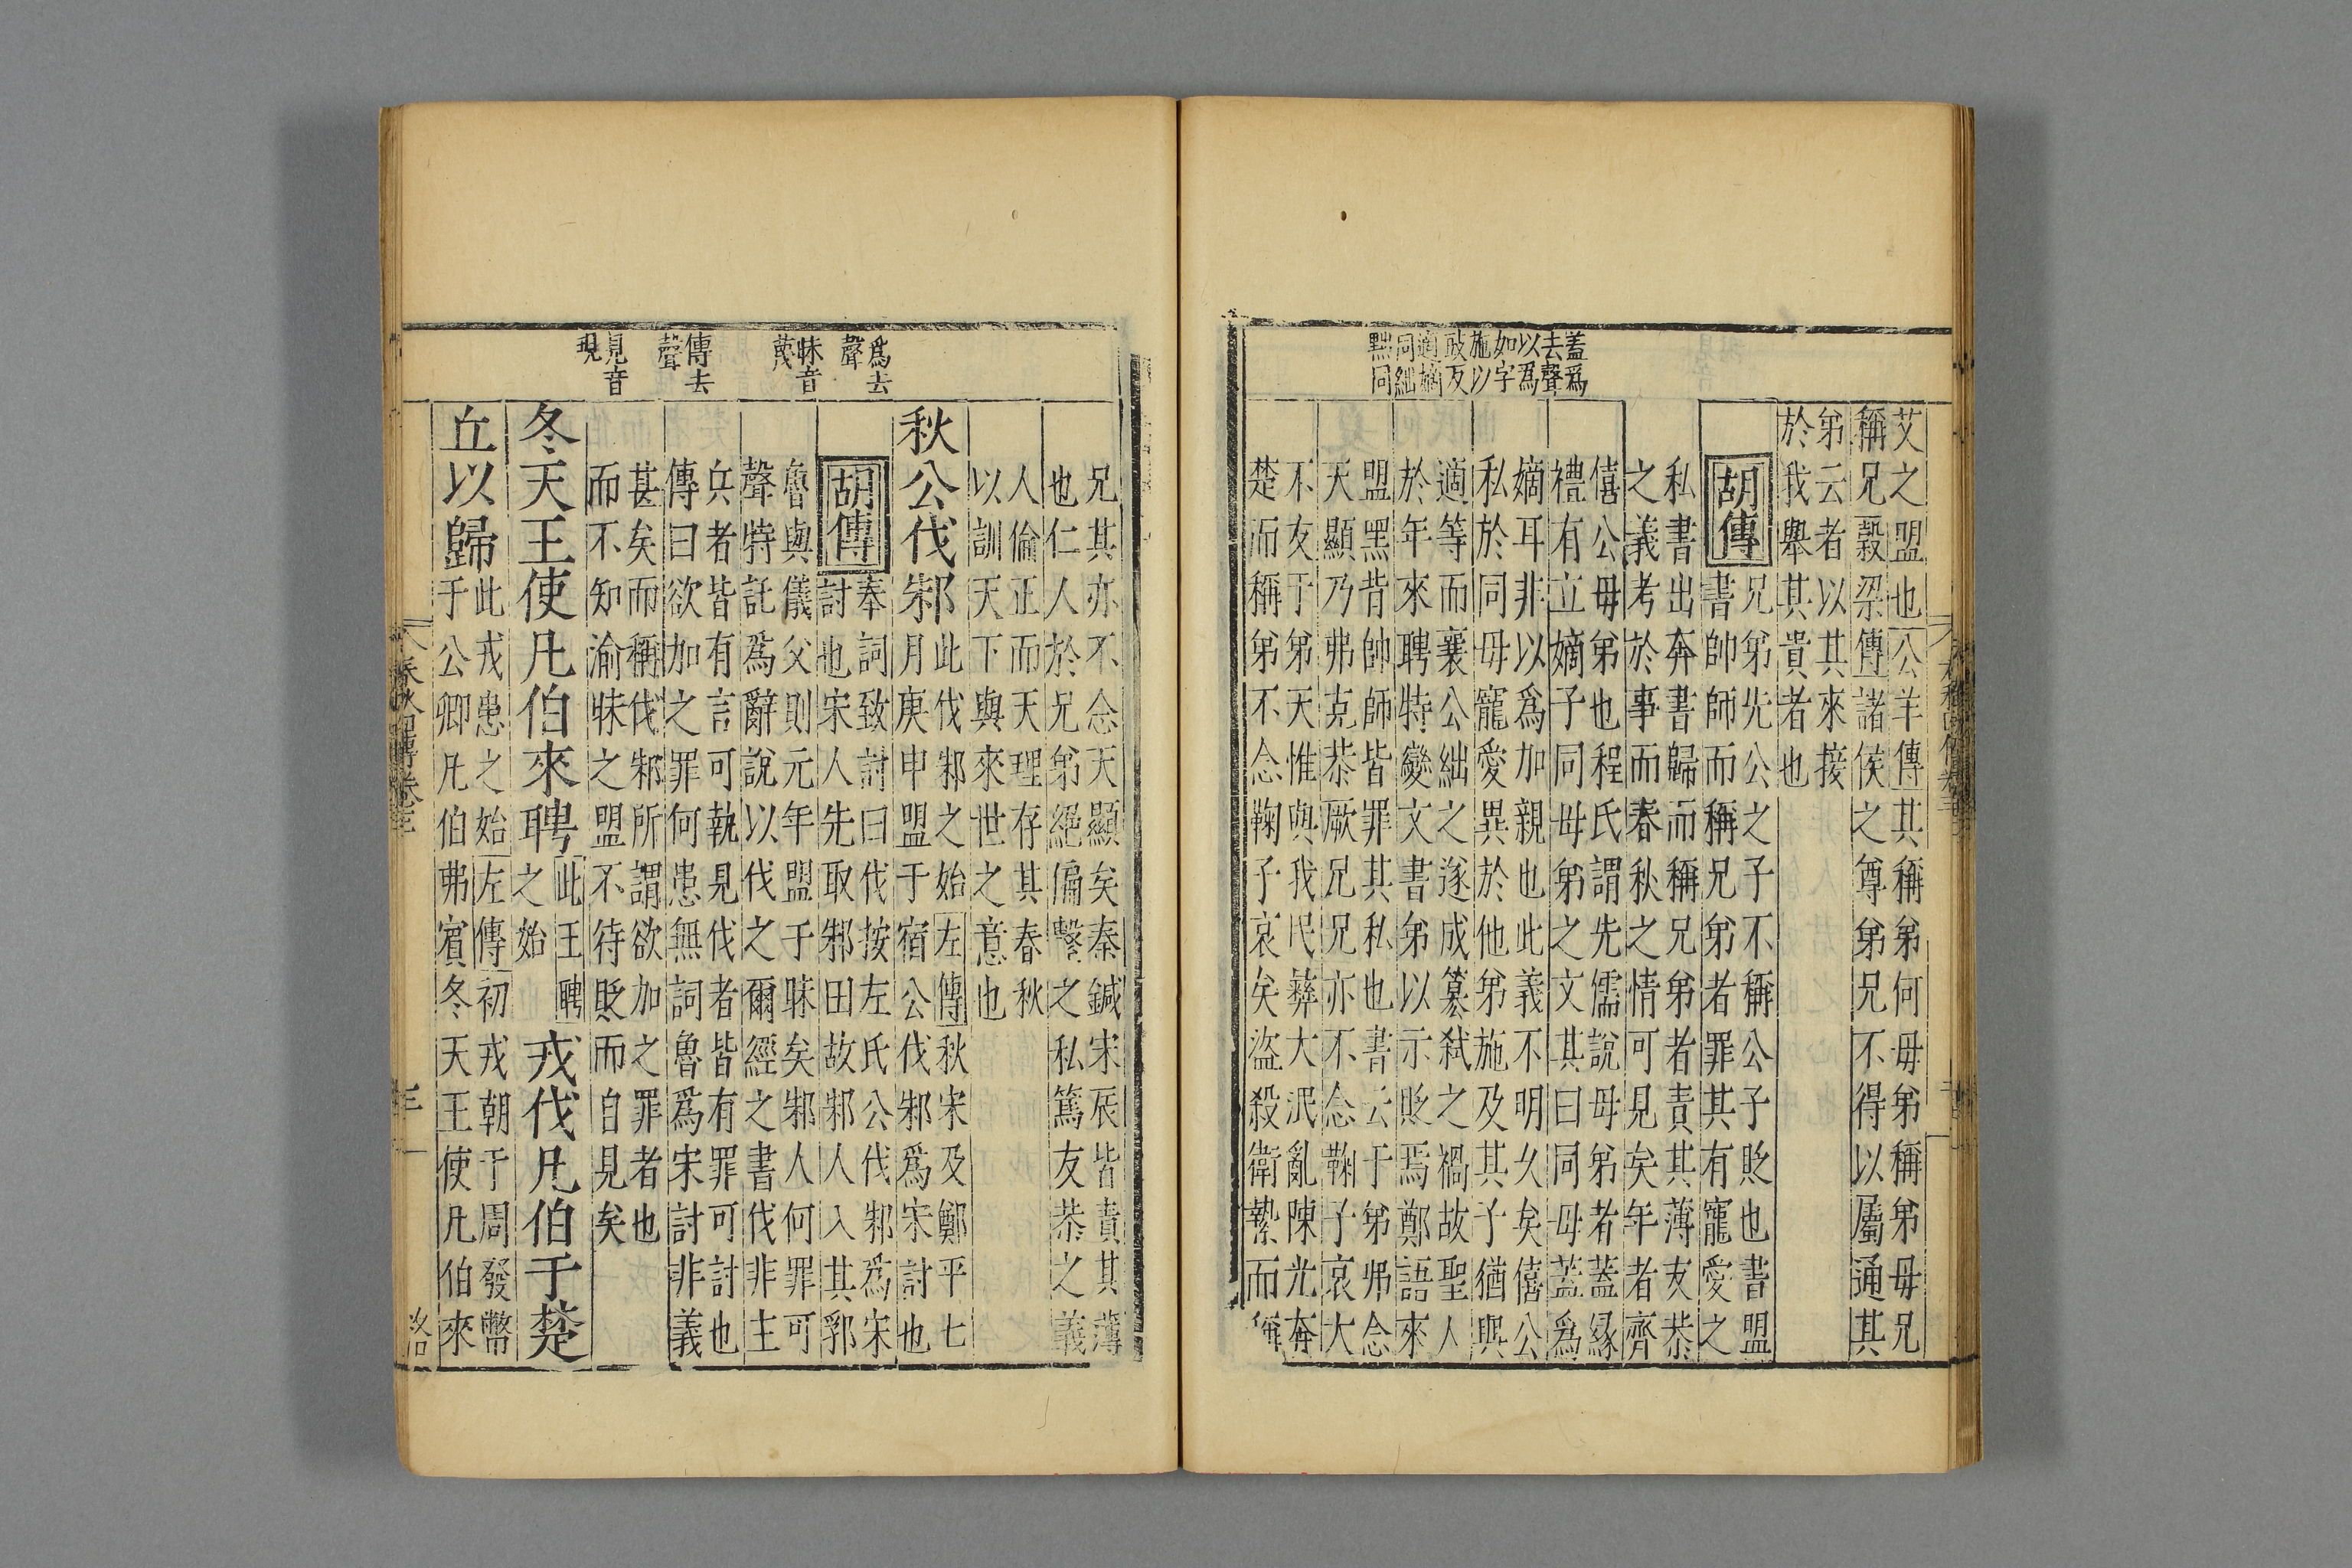 蓋爲
去聲
以爲
如字
施以
䟽反
適嫡
同絀
黜同
艾之盟也公羊傳其稱弟何母弟稱弟母兄
稱兄穀梁傳諸侯之尊弟兄不得以屬通其
弟云者以其來接
於我舉其貴者也
胡傳
兄弟先公之子不稱公子貶也書盟
書帥師而稱兄弟者罪其有寵愛之
私書出奔書歸而稱兄弟者責其薄友恭
之義考於事而春秋之情可見矣年者齊
僖公母弟也程氏謂先儒說母弟者蓋緣
禮有立嫡子同母弟之文其曰同母蓋爲
嫡耳非以爲加親也此義不明久矣僖公
私於同母寵愛異於他弟施及其子猶與
適等而襄公絀之遂成簒弑之禍故聖人
於年來聘特變文書弟以示貶焉鄭語來
盟黑背帥師皆罪其私也書云于弟弗念
天顯乃弗克恭厥兄兄亦不念鞠子哀大
不友于弟天惟與我民彝大泯亂陳光奔
楚而稱弟不念鞠子哀矣盜殺衛縶而稱
兄其亦不念天顯矣秦鍼宋辰皆責其薄
也仁人於兄弟絕偏繫之私篤友恭之義
人倫正而天理存其春秋
以訓天下與來世之意也
爲去
聲
昧音
蔑
傳去
聲
見音
現
秋公伐邾
此伐邾之始左傳秋宋及鄭平七
月庚申盟于宿公伐邾爲宋討也
胡傳
奉詞致討曰伐按左氏公伐邾爲宋
討也宋人先取邾田故邾人入其郛
魯與儀父則元年盟于昧矣邾人何罪可
聲特託爲辭說以伐之爾經之書伐非主
兵者皆有言可執見伐者皆有罪可討也
傳曰欲加之罪何患無詞魯爲宋討非義
甚矣而稱伐邾所謂欲加之罪者也
而不知渝昧之盟不待貶而自見矣
冬天王使凡伯來聘
此王聘
之始
戎伐凡伯于楚
丘以歸
此戎患之始左傳初戎朝于周發幣
于公卿凡伯弗賓冬天王使凡伯來
春秋四傳卷